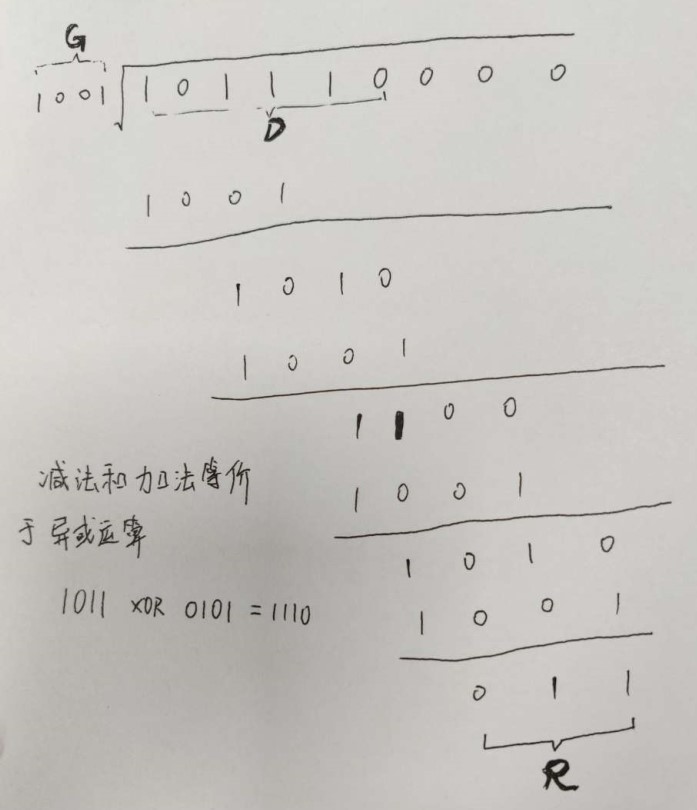 G
1001 101110000
D
1001
1010
1001
1100
1001
1010
1001
011
R
减法和加法等价
于异或运算
1011 XOR 0101 = 1110